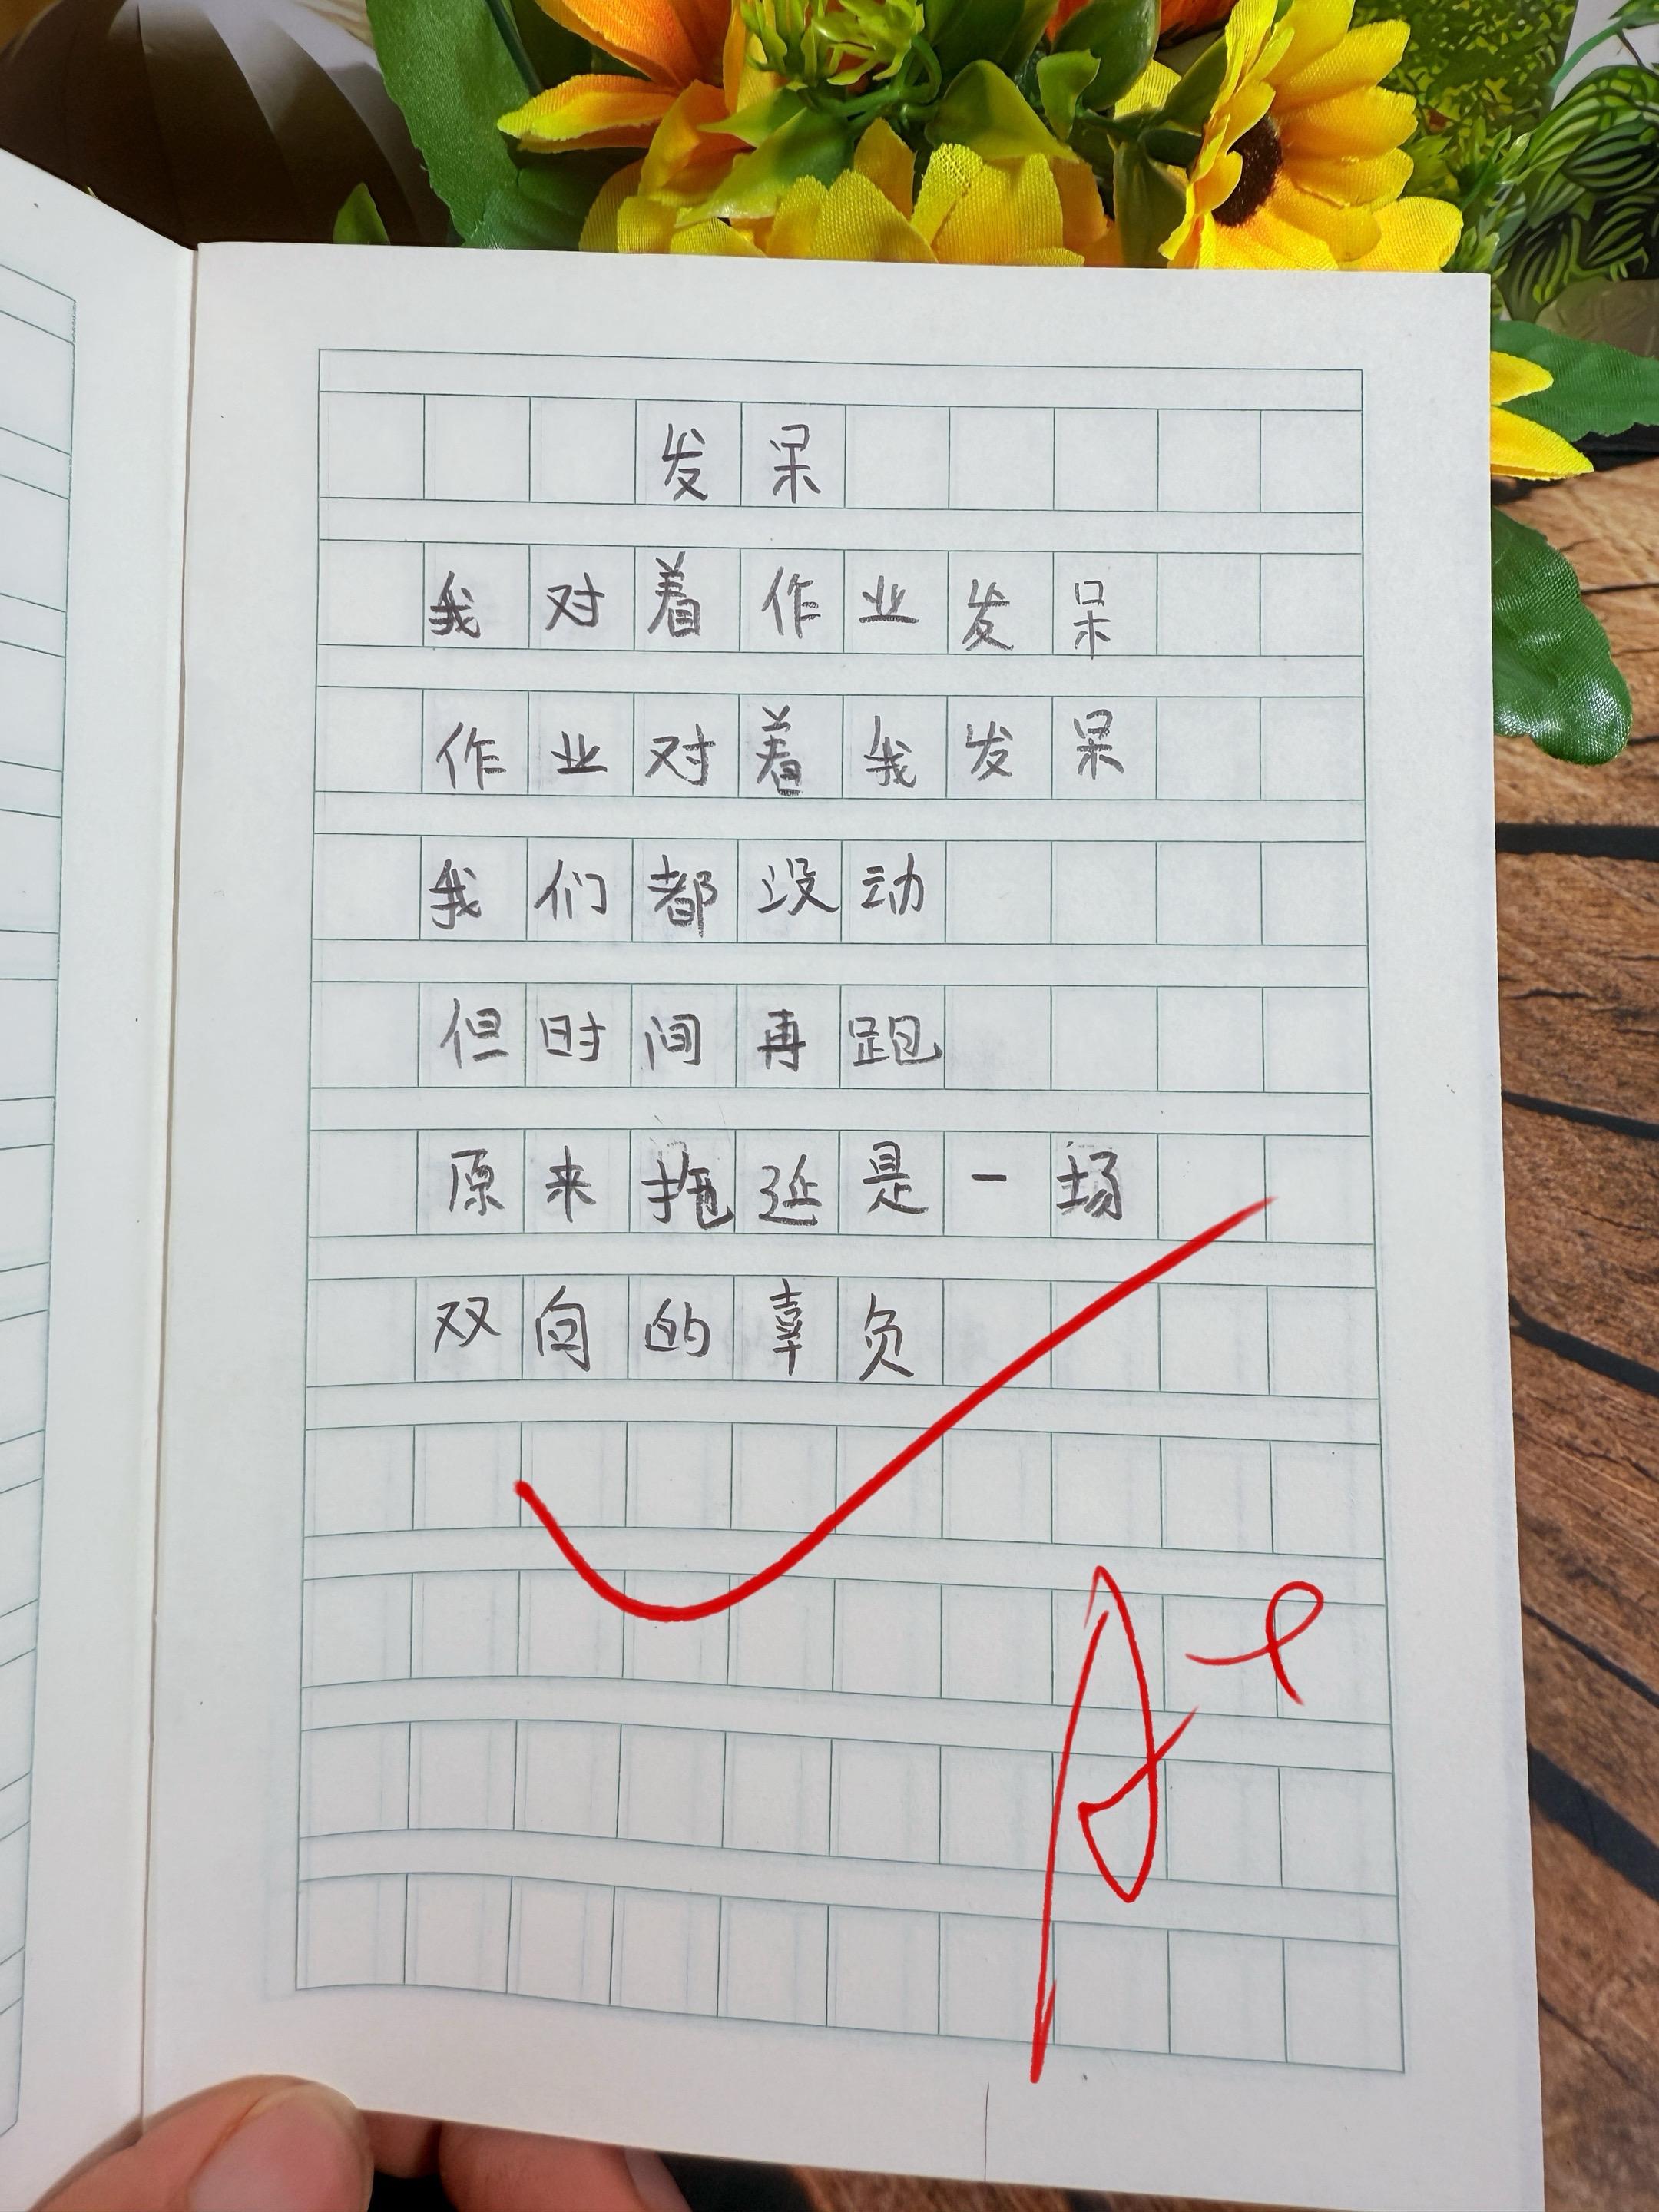 发呆
我对着作业发呆
作业对着我发呆
我们都没动
但时间再跑
原来拖延是一场
双向的辜负
A+